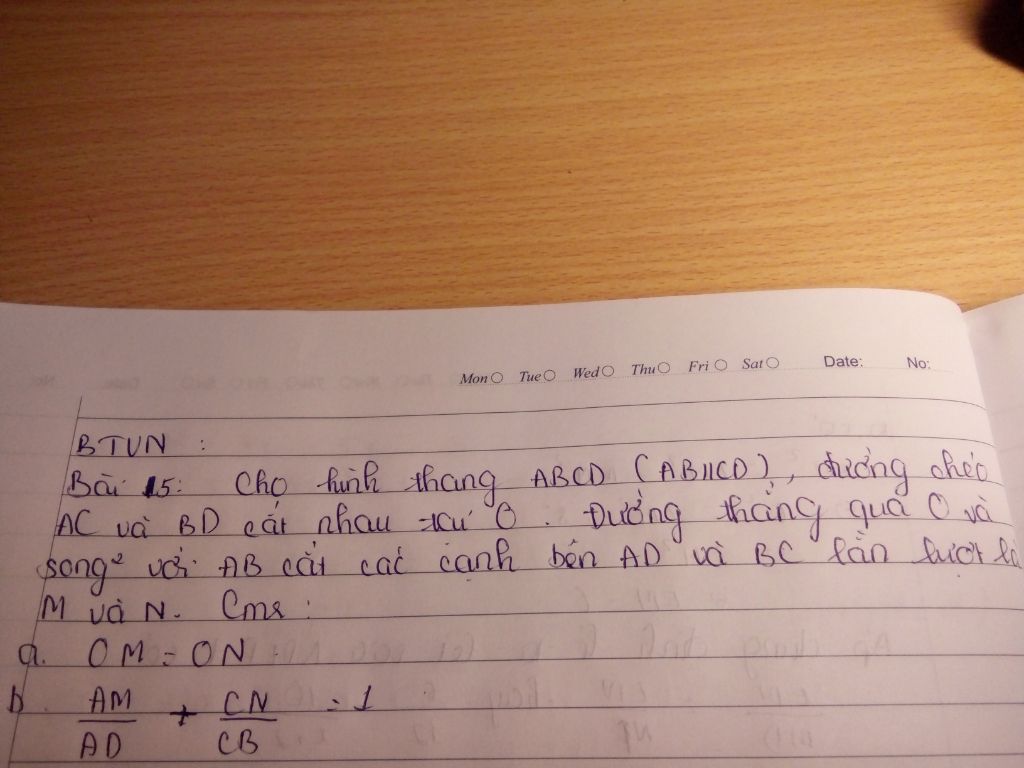 Mon Tue Wed Thu Fri Sat Date: No:
BTVN :
Bài 15: Cho hình thang ABCD (AB//CD), đường chéo
AC và BD cắt nhau tại O. Đường thẳng qua O và
song² với AB cắt các cạnh bên AD và BC lần lượt là
M và N. Cmr :
a. OM = ON
b. AM/AD + CN/CB = 1